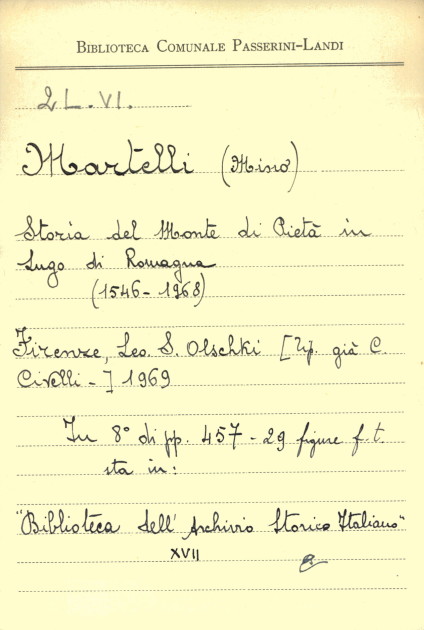 BIBLIOTECA COMUNALE PASSERINI-LANDI
2 L. VI.
Martelli (Mino)
Storia del Monte di Pietà in
Lugo di Romagna
(1546 - 1968)
Firenze, Leo. S. Olschki [Tip. già C.
Civelli -] 1969
In 8° di pp. 457 - 29 figure f. t.
sta in:
"Biblioteca dell' Archivio Storico Italiano"
XVII